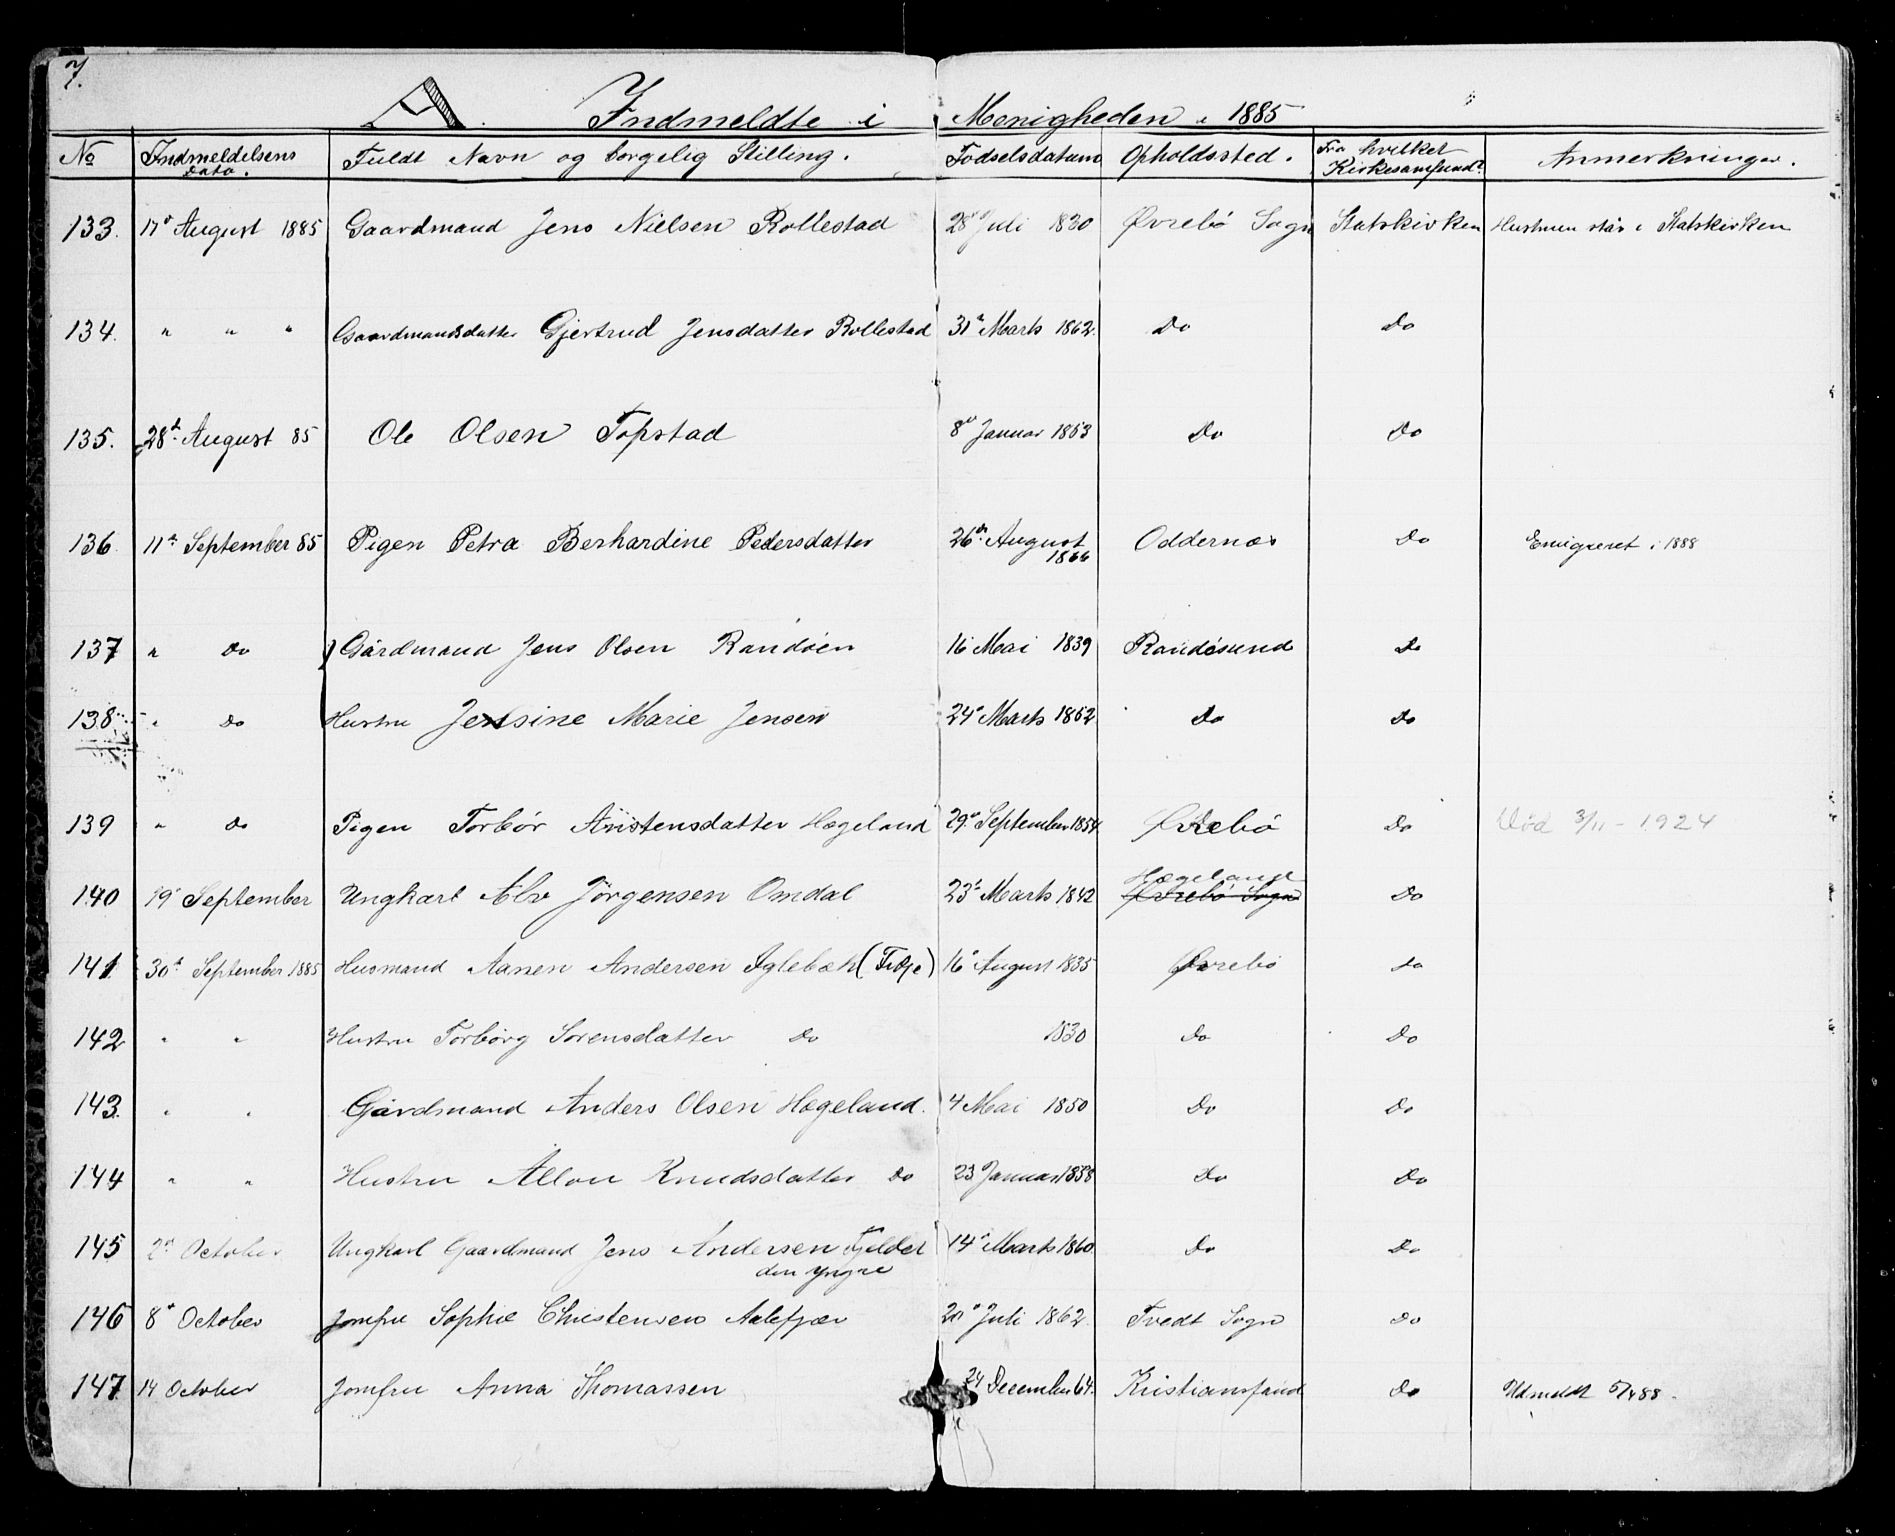 7.
A. Indmeldte i Menigheden i 1885
No Indmeldelsens Dato. Fuldt Navn og borgelig Stilling. Fødselsdatum Opholdssted. Fra hvilket Kirkesamfund? Anmerkninger.
133. 17d August 1885 Gaardmand Jens Nielsen Rollestad 28d Juli 1830 Øvrebö Sogn Statskirken Hustruen står i Statskirken
134. " " " Gaardmandsdatter Gjertrud Jensdatter Rollestad 31d Marts 1862. Do Do
135. 28d August 85 Ole Olsen Topstad 8d Januar 1853 Do Do
136 11d September 85 Pigen Petra Berhardine Pedersdatter 26de August 1866 Oddernæs Do Emigreret i 1888
137 " Do Gårdmand Jens Olsen Randöen 16 Mai 1839 Randösund Do
138 " Do Hustru Jensine Marie Jensen 24d Marts 1852 Do Do
139 " Do Pigen Torbör Aristensdatter Hægeland 29d September 1854 Øvrebö Do Död 3/11 - 1924
140 19d September Ungkarl Alv Jörgensen Omdal 23d Marts 1842 Hægeland Øvrebö Sogn Do
141 30d September 1885 Husmand Aanen Andersen Iglebæk (Fidje) 16d August 1835 Øvrebö do
142 " " Hustru Torbörg Sörensdatter Do 1830 Do Do
143. " " Gårdmand Anders Olsen Hægeland. 4 Mai 1850 Do Do
144 " " Hustru Knudsdatter Do 23 Januar 1858 Do Do
145 2d October Ungkarl Gaardmand Jens Andersen Fjeldet den yngre 14d Marts 1860 Do Do
146 8d October Jomfru Sophie Christensen Aalefjær 20d Juli 1862. Tvedt Sogn Do
147 14 October Jomfru Anna Thomassen 24 December 64. Kristiansand Do Udmeldt 5/4 88.